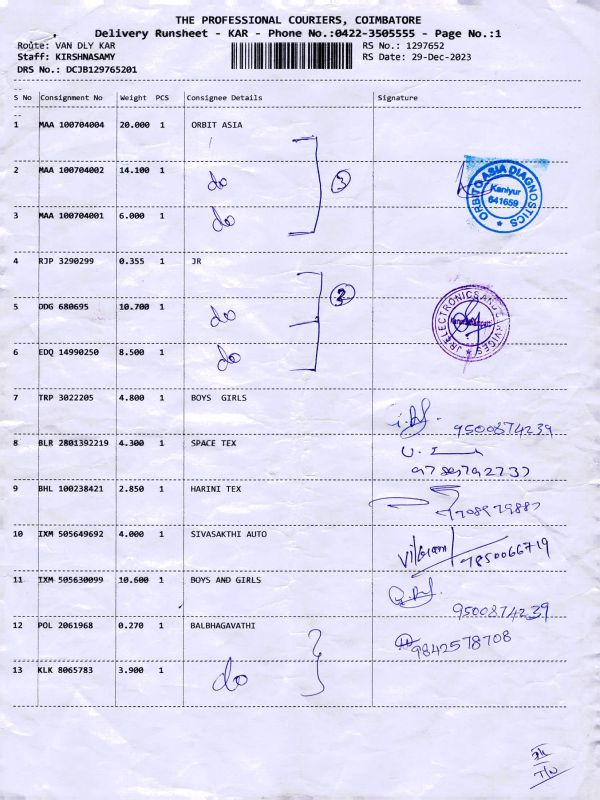 THE PROFESSIONAL COURIERS, COIMBATORE
Delivery Runsheet - KAR - Phone No.:0422-3505555 - Page No.:1
Route: VAN DLY KAR RS No.: 1297652
Staff: KIRSHNASAMY RS Date: 29-Dec-2023
DRS No.: DCJB129765201
S No Consignment No Weight PCS Consignee Details Signature
1 MAA 100704004 20.000 1 ORBIT ASIA
2 MAA 100704002 14.100 1 do 3
ORBITO ASIA DIAGNOSTICS
Kaniyur
641659
3 MAA 100704001 6.000 1 do
4 RJP 3290299 0.355 1 JR
2
5 DDG 680695 10.700 1 do
JR ELECTRONICS AND SERVICES
6 EDQ 14990250 8.500 1 do
7 TRP 3022205 4.800 1 BOYS GIRLS
9500874239
8 BLR 2801392219 4.300 1 SPACE TEX
9 BHL 100238421 2.850 1 HARINI TEX
10 IXM 505649692 4.000 1 SIVASAKTHI AUTO
11 IXM 505630099 10.600 1 BOYS AND GIRLS
9500874239
12 POL 2061968 0.270 1 BALBHAGAVATHI
9842578708
13 KLK 8065783 3.900 1 do